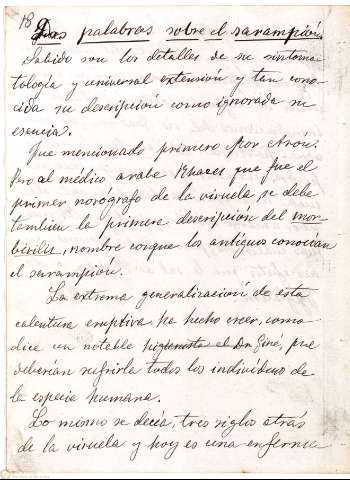 18
Dos palabras sobre el sarampión.
Sabido son los detalles de su sintoma-
tología y universal extensión y tan cono-
cida su descripción como ignorada su
esencia.
Fue mencionado primero por
Pero al médico arabe Rhazes que fue el
primer norógrafo de la viruela, se debe
tambien la primera descripcion del mor-
birilis, nombre conque los antiguos conocian
el sarampión.
La extrema generalización de esta
calentura eruptiva, ha hecho creer, como
dice un notable higienista el Dr. Giné, que
deberían sufrirla todos los individuos de
la especie humana.
Lo mismo se decía, tres siglos atrás
de la viruela y hoy es una enferme-